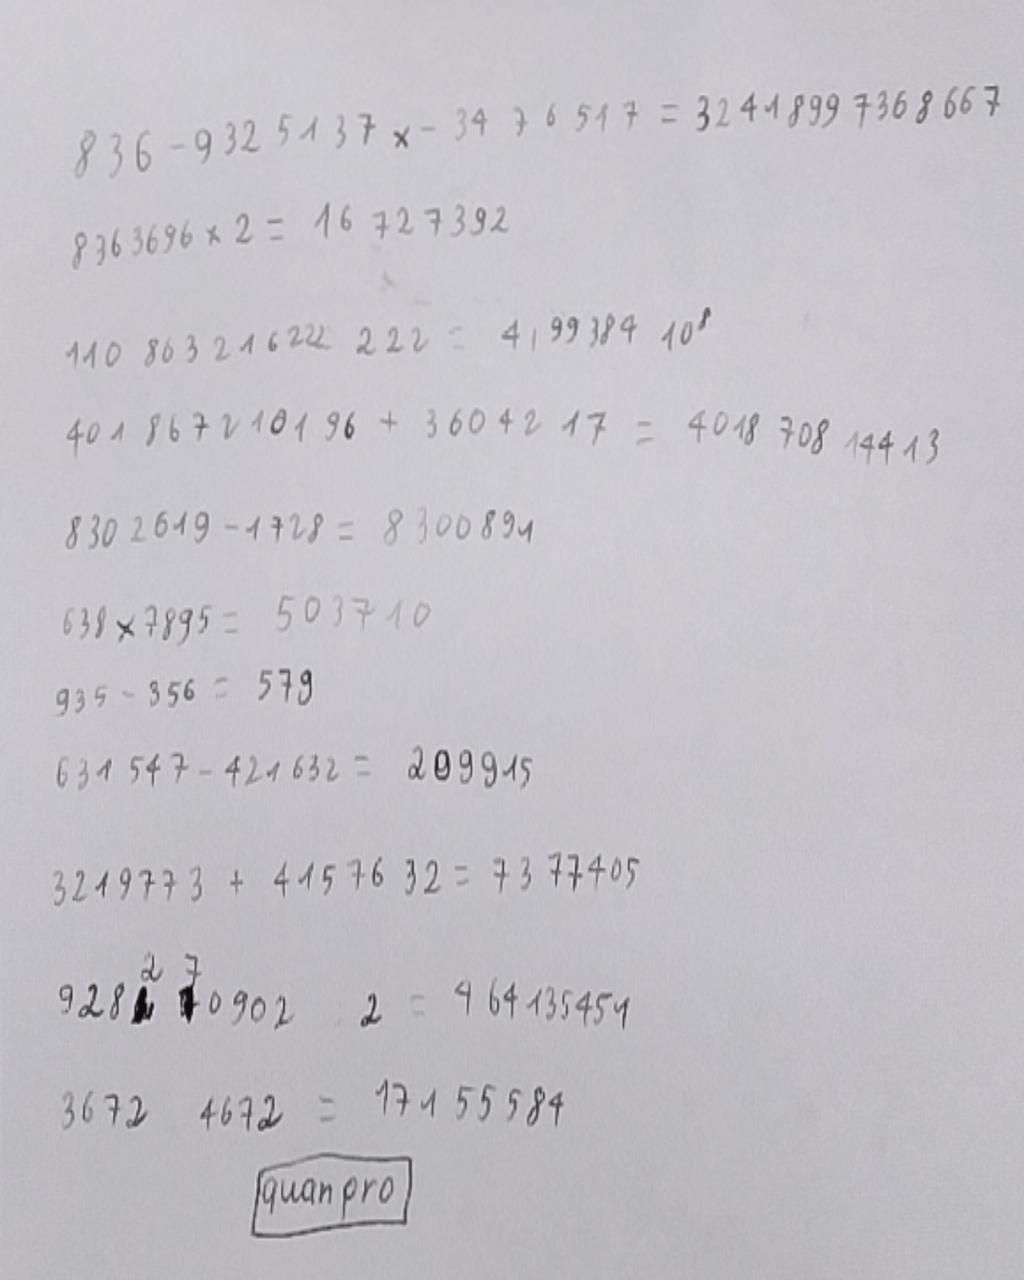 836-9325137x-3476517=32418997368667
8363696x2=16727392
11086321622 222=4,99384 10⁸
401867210196+36042 17=4018 708 14413
8302619-1728=8300891
638x7895=503710
935-356=579
631547-421632=209915
3219773+4157632=7377405
928270902 2=464135451
3672 4672=17155584
quanpro